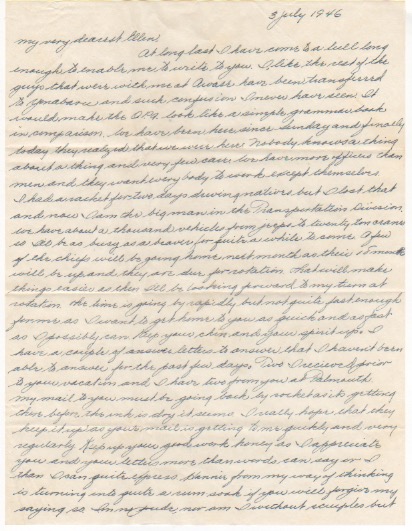 3 July 1946
My very dearest Ellen,
At long last I have come to a lull long
enough to enable me to write to you. I like the rest of the
guys that were with me at Awase have been transferred
to and such confusion I never have seen. It
would make the OPA look like a simple grammar book
in comparison. We have been here since Sunday and finally
today they realized that we were here. Nobody knows a thing
about a thing and very few care. We have more officers than
men and they want every body to work except themselves
I had a racket for two days driving natives, but I lost that
and now I am the big man in the Transportation Division.
We have about a thousand vehicles from jeeps to twenty ton cranes
so I'll be as busy as a beaver for quite a while to come. A few
of the chiefs will be going home next month as their 15 months
will be up and they are due for rotation. That will make
things easier as then I'll be looking forward to my turn at
rotation. The time is going by rapidly but not quite fast enough
for me as I want to get home to you as quick and as fast
as I possibly can. Keep your chin and your spirit up. I
have a couple of answer letters to answer that I haven't been
able to answer for the past few days. Two I received prior
to your vacation and I have two from you at Falmouth
my mail to you must be going back by rocket as it getting
there before the ink is dry it seems. I really hope that they
keep it up as your mail is getting to me quickly and very
regularly. Keep up your good work honey as I appreciate
you and your letters more than words can say or I
than I can quite express. Dannie from my way of thinking
is turning into quite a rum soak if you will forgive my
saying so. I'm no prude nor am I without scruples but